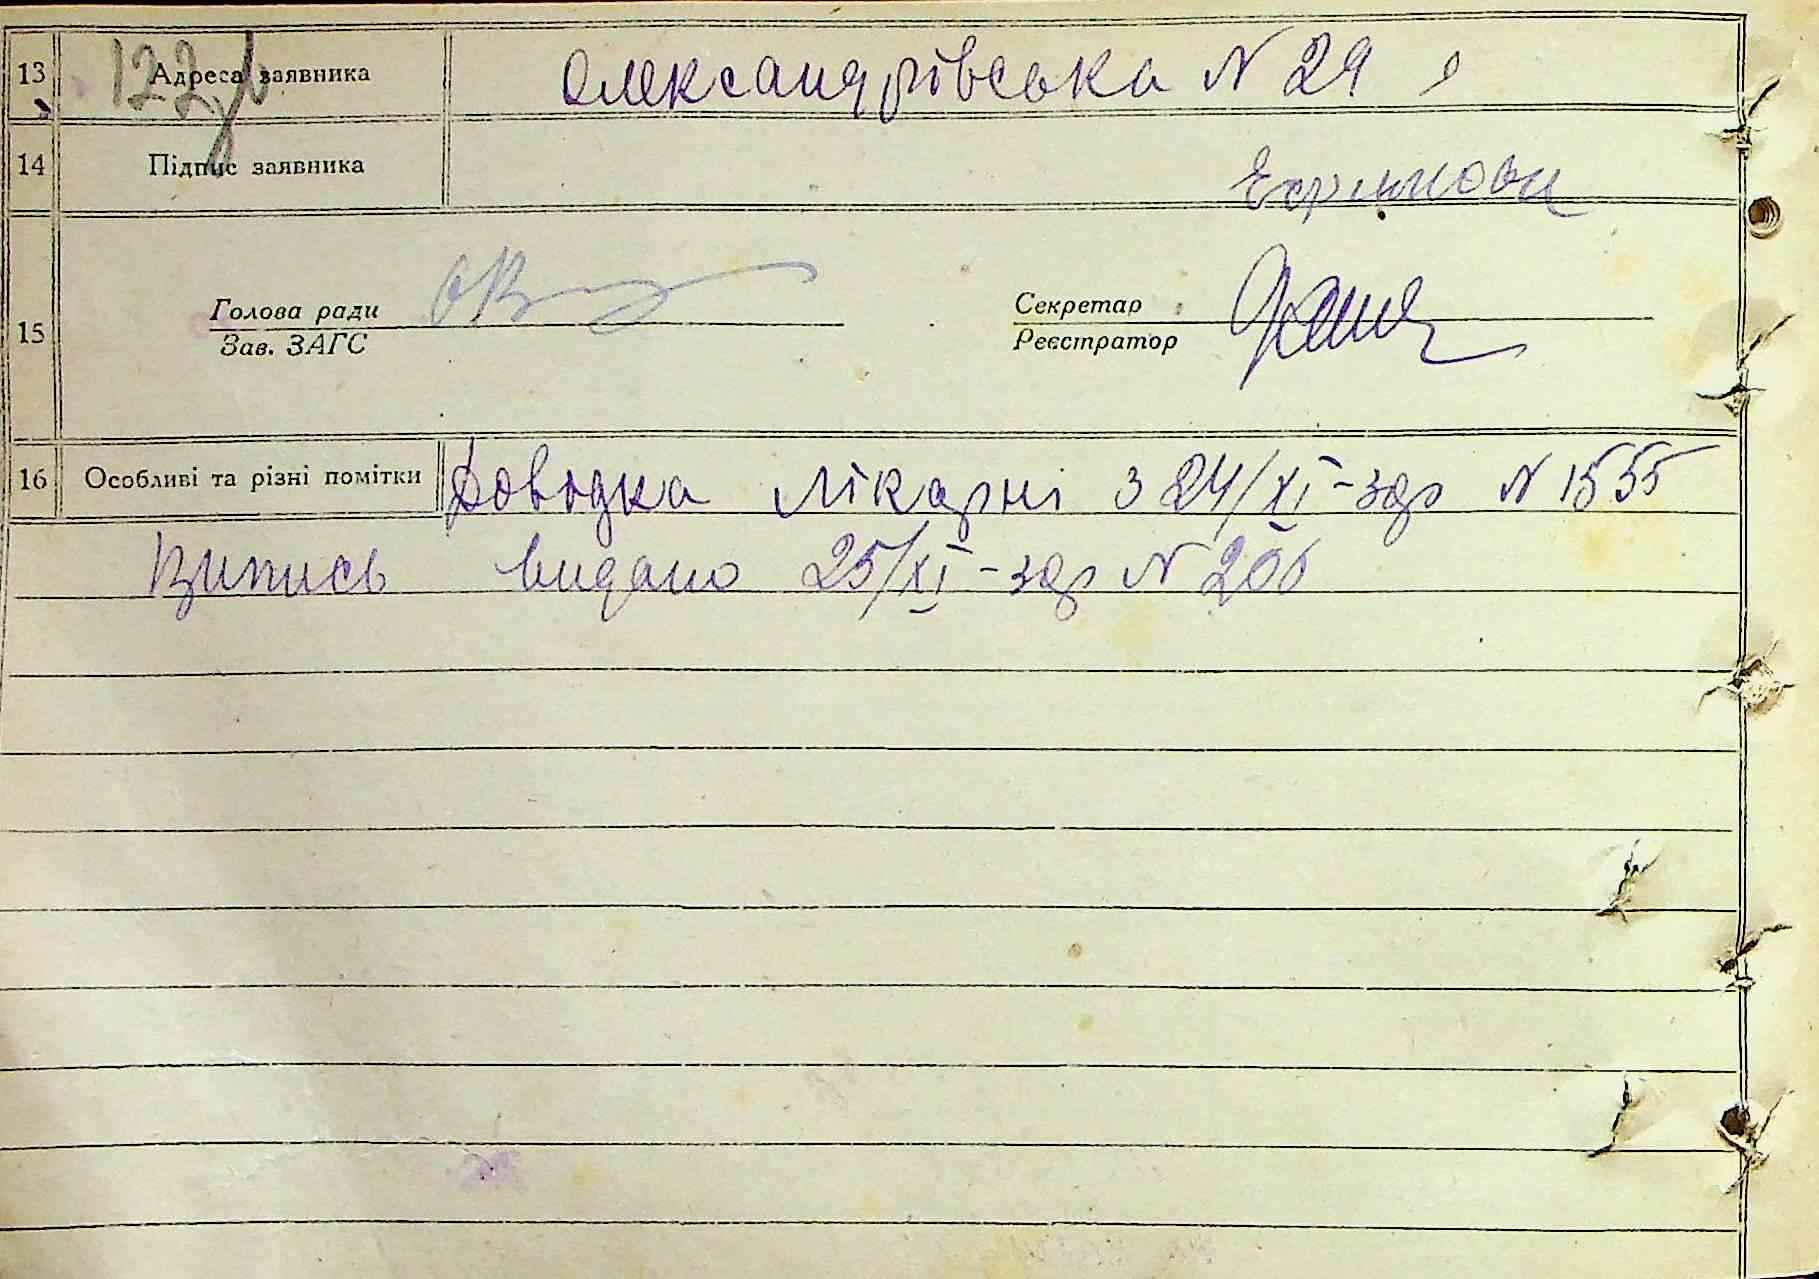 13 Адреса заявника Олександрівська N 29
122
14 Підпис заявника Єфимова
15 Голова ради Секретар
Зав. ЗАГС Реєстратор
16 Особливі та різні помітки Довідка лікарні з 24/XI-32р N 1555
Випись видано 25/XI-32р N 206